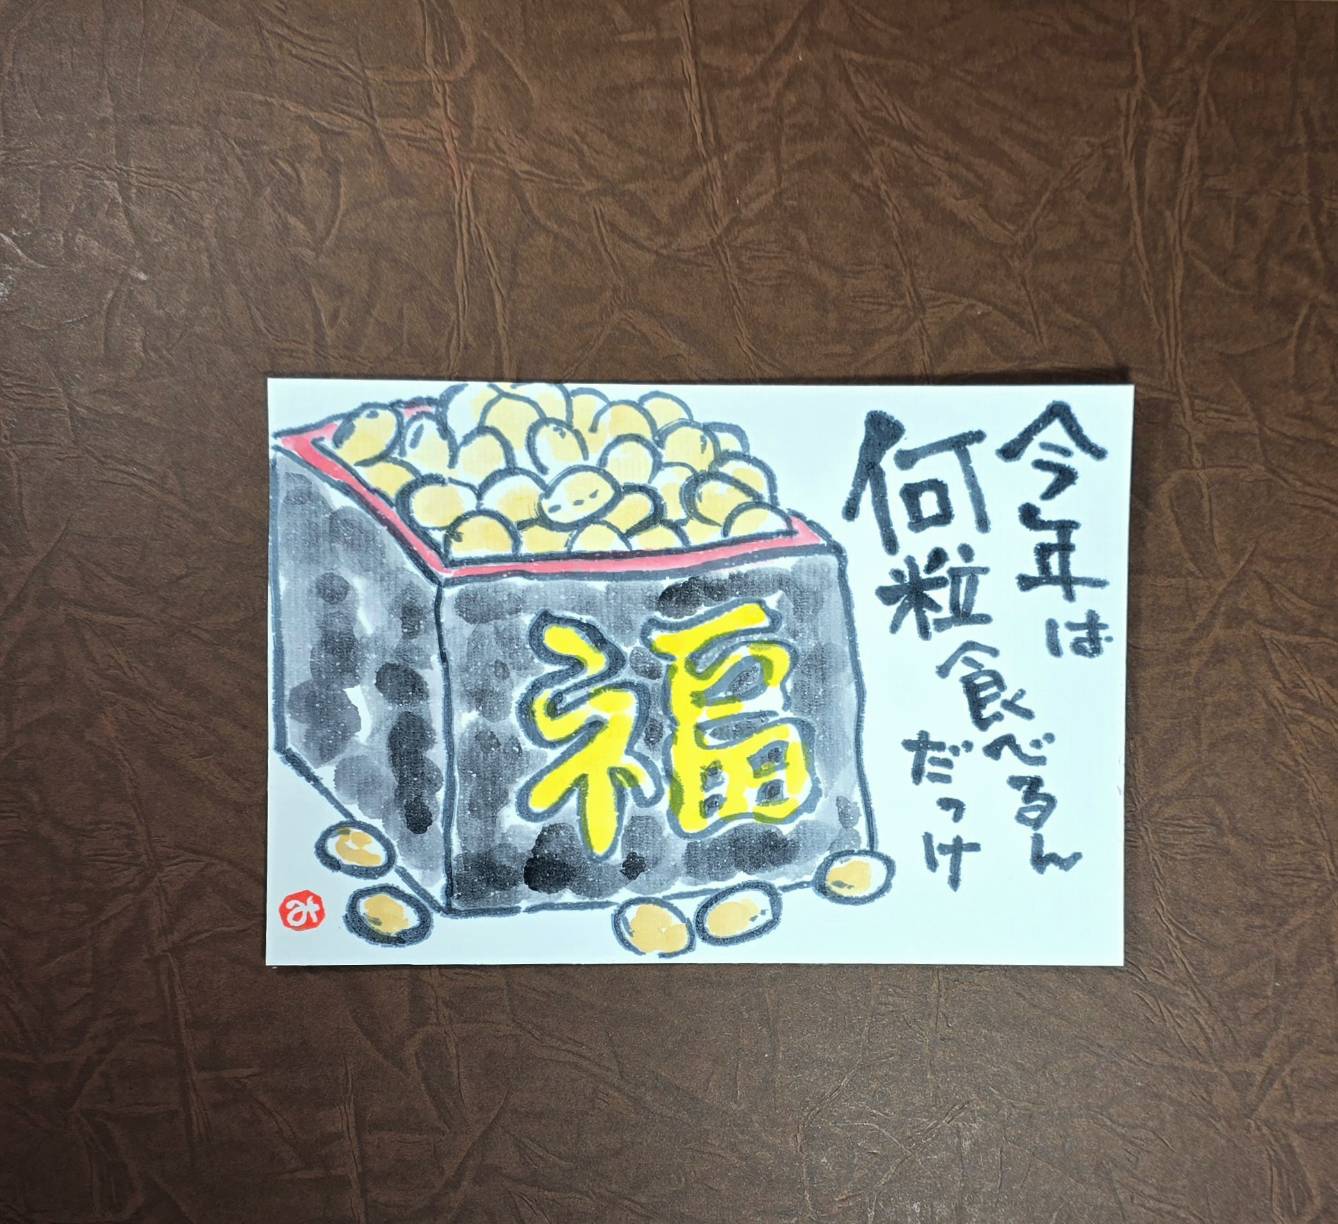 今年は
何粒食べるん
だっけ
福
み